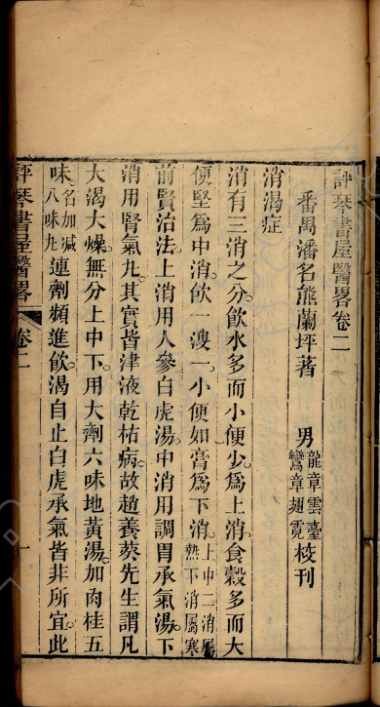 評琴書屋醫畧卷二
番禺潘名熊蘭坪著 男 龍章雲臺 鸞章翅霓 校刊
消渴症
消有三消之分。飲水多而小便少。爲上消。食穀多而大
便堅爲中消。飲一溲一。小便如膏爲下消。上中二消屬熱下消屬寒
前賢治法。上消用人參白虎湯。中消用調胃承氣湯。下
消用腎氣丸。其實皆津液乾枯病。故趙養葵先生謂凡
大渴大燥。無分上中下。用大劑六味地黃湯。加肉桂五
味。名加減八味丸連劑頻進飲渴自止白虎承氣皆非所宜。此
評琴書屋醫畧 卷二 一